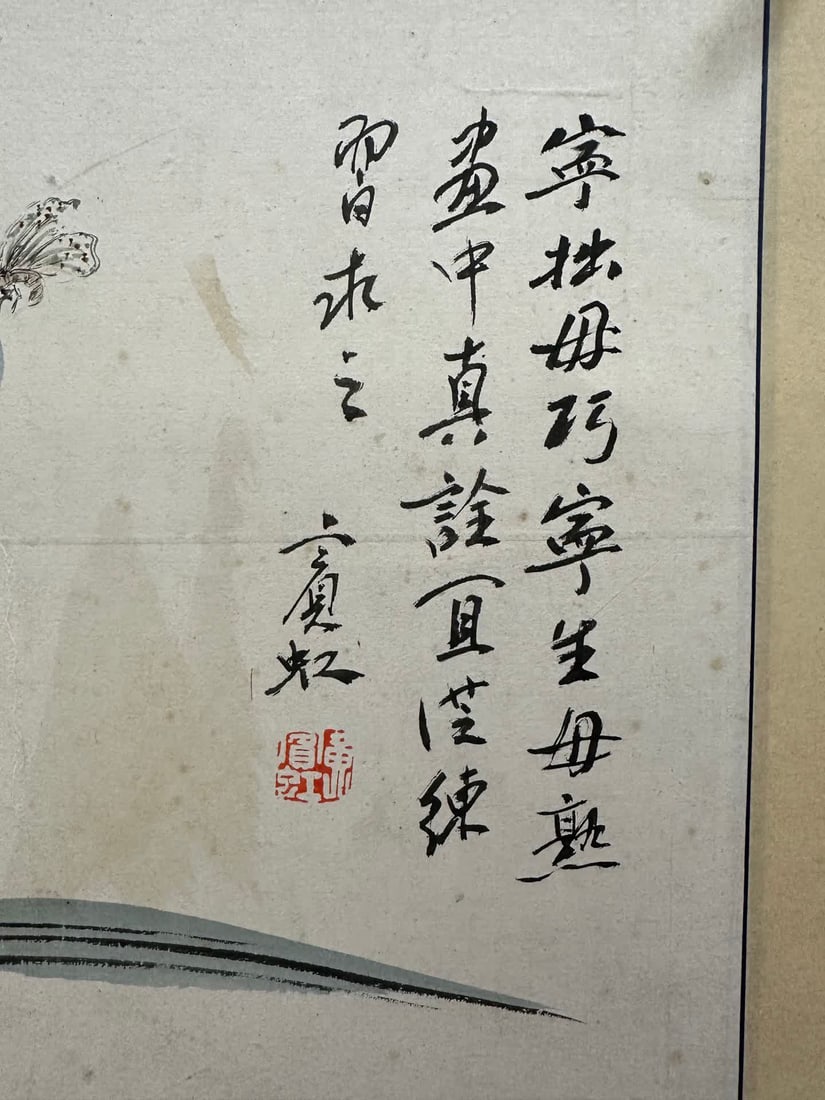 寧拙毋巧寧生毋熟
畫中真詮宜從練
習求之
賓虹
黃賓虹